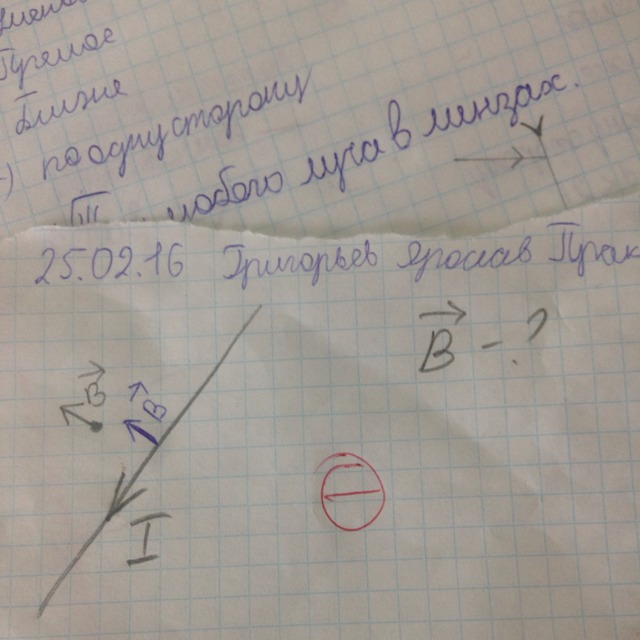 Прямое
Ближе
) по одну сторону
любого луча в линзах.
25.02.16 Григорьев Ярослав Прак
B - ?
B
B
I